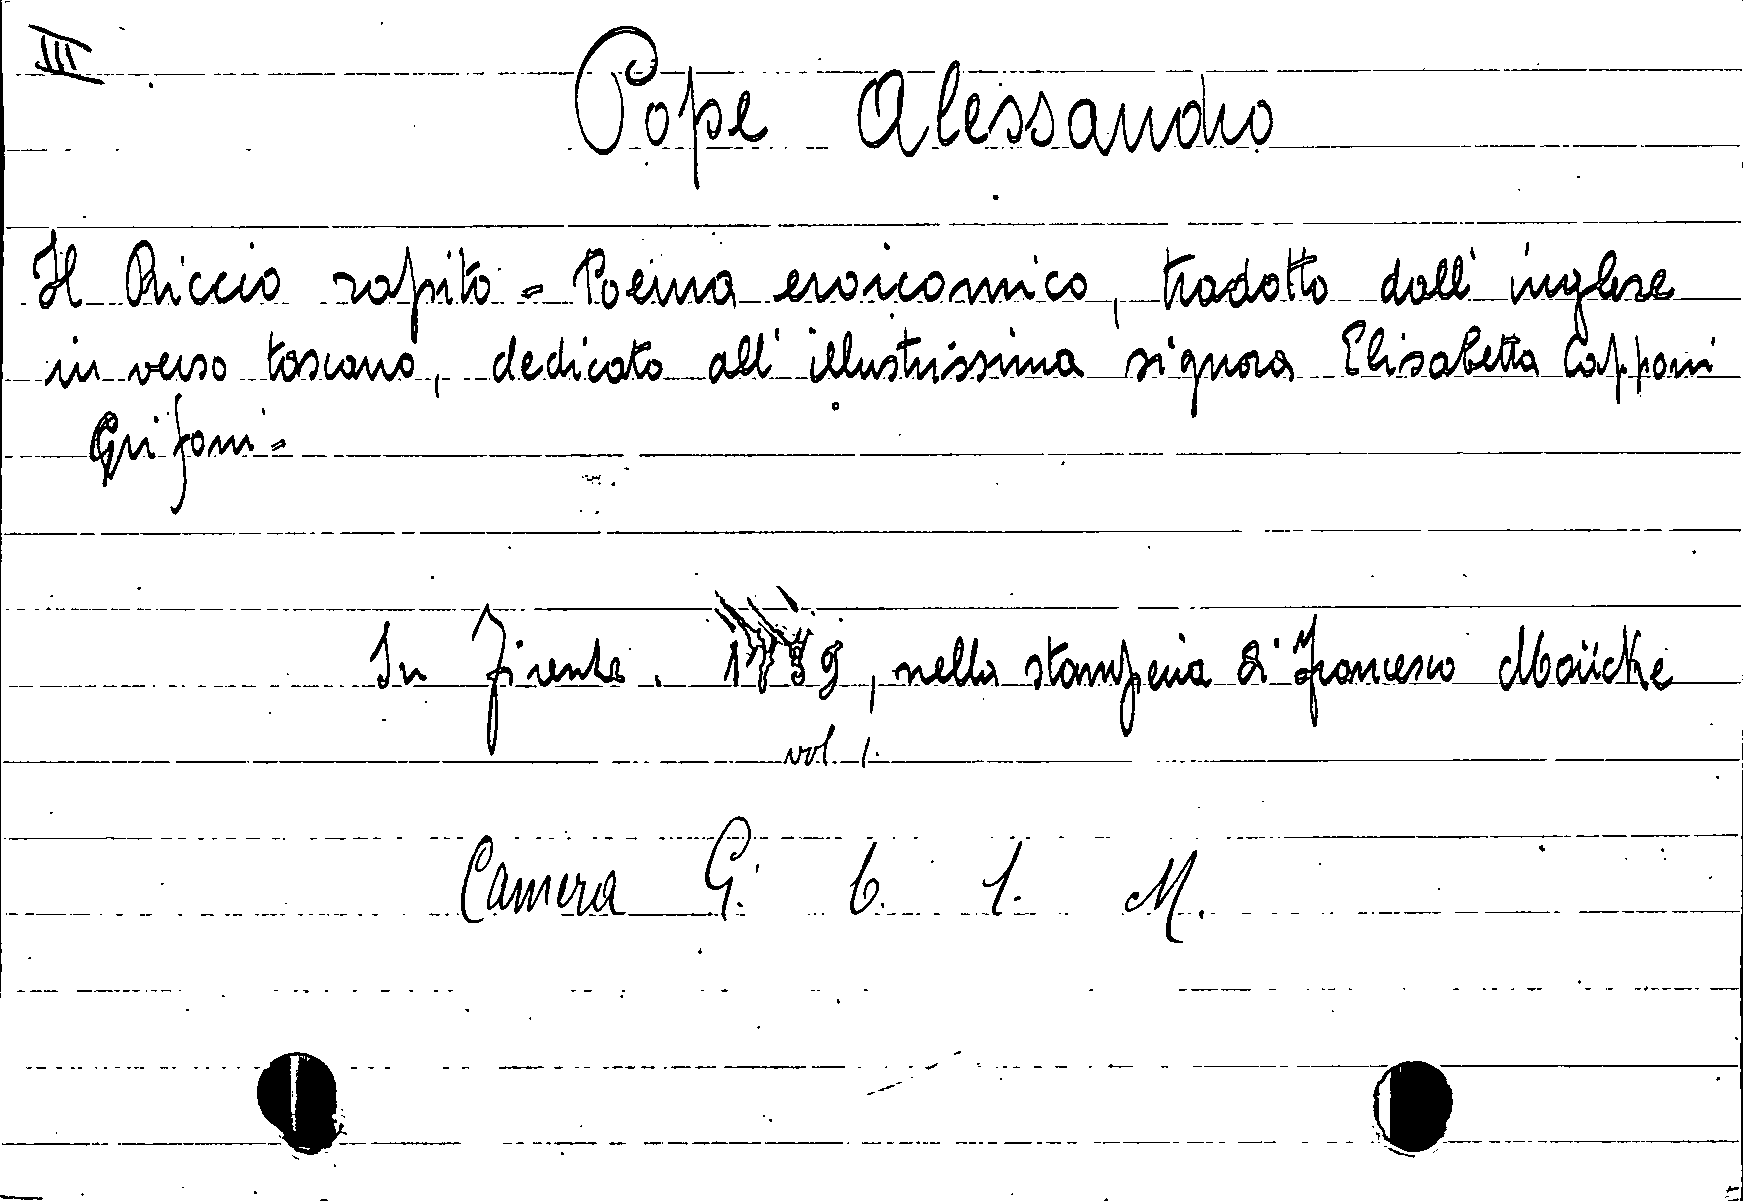 III
Pope Alessandro
Il Riccio rapito = Poema eroicomico, tradotto dall' inglese
in verso toscano, dedicato all' illustrissima signora Elisabetta Capponi
Grifoni =
In Firenze. 1739, nella stamperia di Francesco Moücke
vol. 1.
Camera G. 6. 1. M.